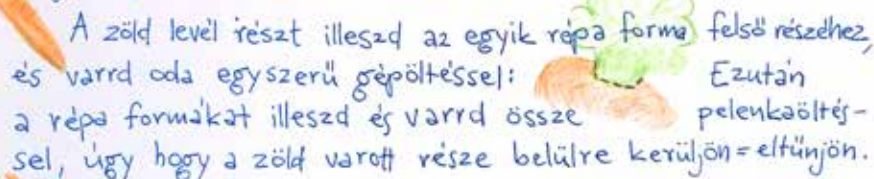 A zöld levél részt illeszd az egyik répa forma felső részéhez,
és varrd oda egyszerű gépöltéssel: Ezután
a répa formákat illeszd és varrd össze pelenkaöltés-
sel, úgy hogy a zöld varott része belülre kerüljön = eltűnjön.